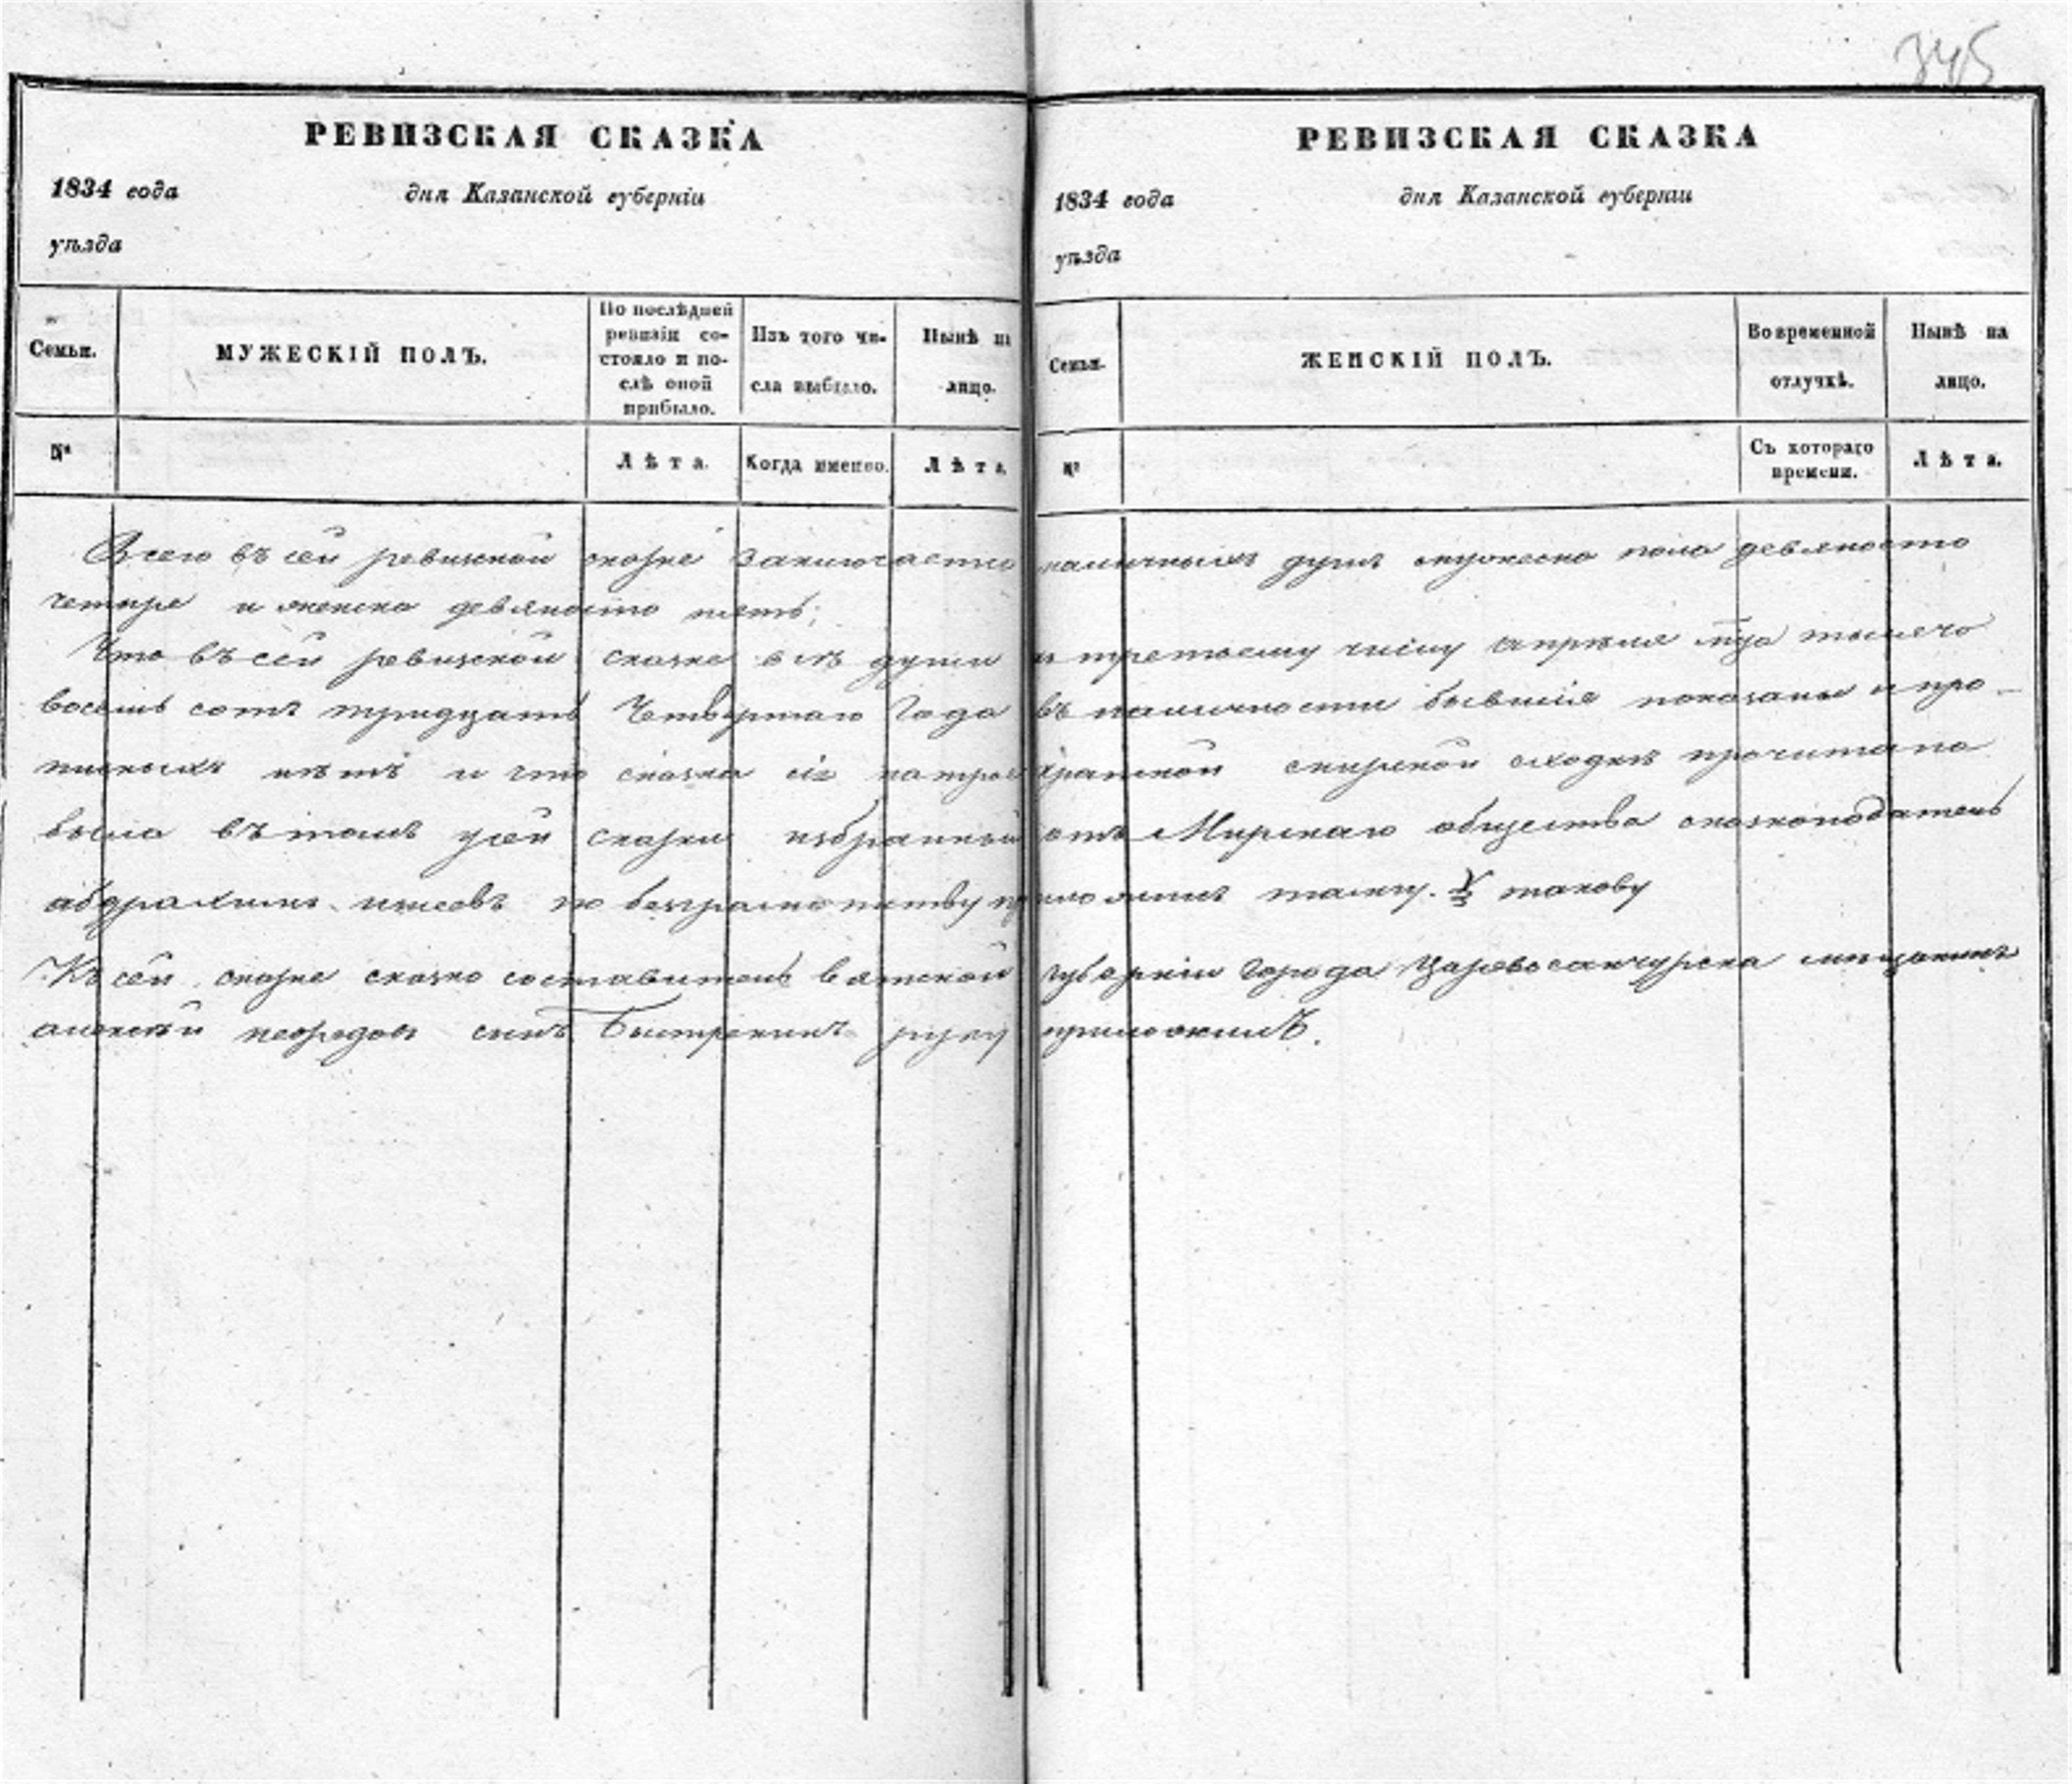 345
РЕВИЗСКАЯ СКАЗКА
1834 года дня Казанской губерніи
уѣзда
Семьи.
МУЖЕСКІЙ ПОЛЪ.
По послѣдней
ревизіи со-
стояло и по-
слѣ оной
прибыло.
Изъ того чи-
сла выбыло.
Нынѣ на
лицо.
№
Лѣта.
Когда именно.
Лѣта.
РЕВИЗСКАЯ СКАЗКА
1834 года дня Казанской губерніи
уѣзда
Семьи.
ЖЕНСКІЙ ПОЛЪ.
Во временной
отлучкѣ.
Нынѣ на
лицо.
№
Съ котораго
времени.
Лѣта.
Всего въ сей ревизской сказке заключается наличныхъ душъ мужеска пола девяносто
четыре и женска девяносто пять;
Что въ сей ревизской сказке всѣ души к третьему числу апрѣля мца тысячо
восемь сотъ тридцать Четвертаго Года въ наличности бывшіе показаны и про-
писныхъ нѣтъ и что сказка сія на мирской сходкѣ прочитана
была въ томъ усей сказки избранный отъ Мирскаго общества сказкоподатель
абдрахимъ по безграмотству приложилъ тамгу. такову
Къ сей сказке сказко составитель вятской губерніи Города Царевосанчурска мещанинъ
алексѣй сынъ Быстренинъ руку приложилъ.